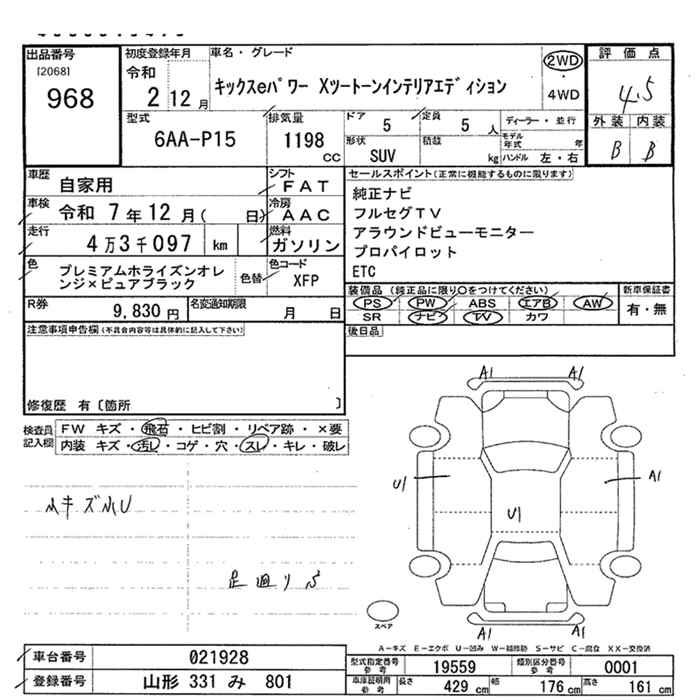 出品番号
[2068]
968
初度登録年月
令和
2 12月
車名・グレード
キックスeパワー XツートーンインテリアエディションRemove
2WD
・
4WD
評価点
4.5
外装 内装
B B
型式
6AA-P15
排気量
1198
CC
ドア
5
定員
5 人
形状
SUV
積載
kg
ディーラー・並行
モデル年式 年
ハンドル 左・右
車歴
自家用
シフト
FAT
車検
令和 7年12月( 日)
冷房
AAC
走行
4万3千097 km
燃料
ガソリン
色
プレミアムホライズンオレ
ンジ×ピュアブラック
色替
色コード
XFP
R券
9,830 円
名変通知期限
月 日
セールスポイント(正常に機能するものに限ります)
純正ナビ
フルセグTV
アラウンドビューモニター
プロパイロット
ETC
装備品 (純正品に限り○をつけてください)
PS PW ABS エアB AW
SR ナビ TV カワ
新車保証書
有・無
後日品
注意事項申告欄(不具合内容等は具体的に記入して下さい)
修復歴 有〔箇所 〕
検査員
記入欄
FW キズ・飛石・ヒビ割・リペア跡・×要
内装 キズ・汚レ・コゲ・穴・スレ・キレ・破レ
小キズ小U
足廻りS
A1 A1
U1
U1
A1
A1 A1
スペア
A-キズ E-エクボ U-凹み W-補修跡 S-サビ C-腐食 XX-交換済
車台番号
021928
登録番号
山形 331 み 801
型式指定番号
参考
19559
類別区分番号
参考
0001
車庫証明用
参考
長さ
429 cm
幅
176 cm
高さ
161 cm